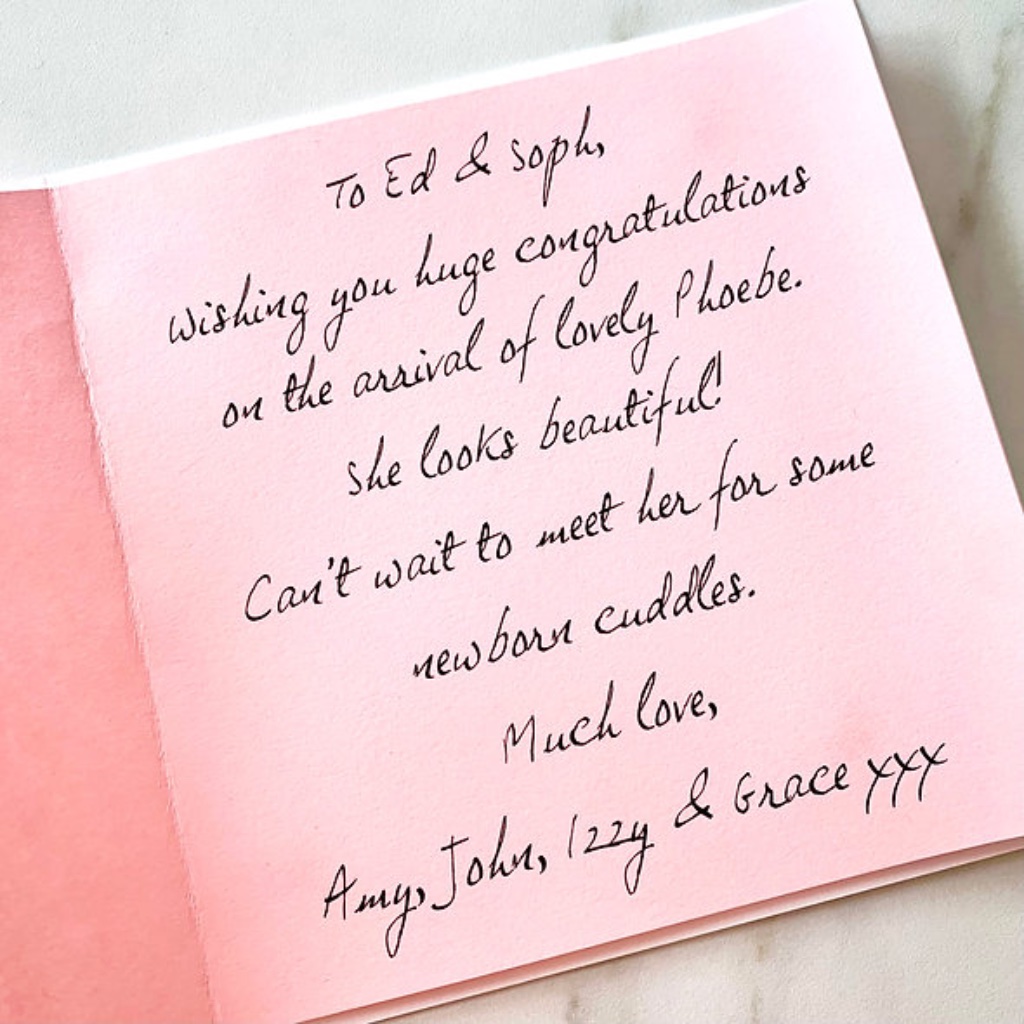 To Ed & Soph,
Wishing you huge congratulations
on the arrival of lovely Phoebe.
She looks beautiful!
Can't wait to meet her for some
newborn cuddles.
Much love,
Amy, John, Izzy & Grace xxx